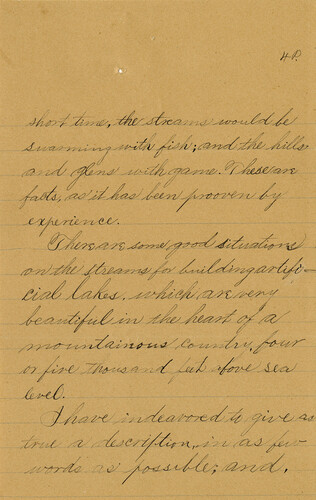 4 P.
short time, the streams would be
swarming with fish; and the hills
and glens with game. These are
facts, as it has been prooven by
experience.
There are some good situations
on the streams for building artifi-
cial lakes. which are very
beautiful in the heart of a
mountainous country, four
or five thousand feet above sea
level.
I have indeavored to give as
true a description, in as few
words as possible; and,